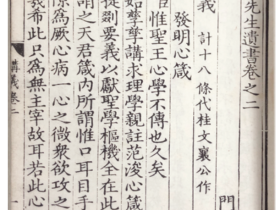 先生遺書卷之二
門
義 計十八條代桂文襄公作
發明心箴
惟聖王心學不傳也久矣
如孳孳講求理學親註范浚心箴
從剟要義以獻聖學樞機全在此
謂之天君箴內所謂惟口耳目手
隙爲厥心病一心之微衆欲攻之
幾希此只爲無主宰故耳若此心
講義卷二